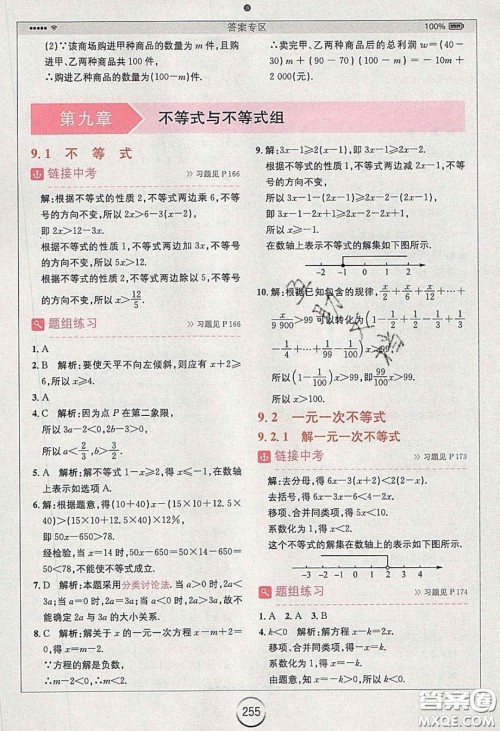 答案专区
100%
(2)∵该商场购进甲种商品的数量为 m 件,且购
进甲、乙两种商品共 100 件,
∴购进乙种商品的数量为(100-m)件.
∴卖完甲、乙两种商品的总利润 w=(40-
30)m+(90-70)(100-m)=-10m+
2 000(元).
第九章 不等式与不等式组
9.1 不 等 式
链接中考
>>习题见 P166
解:根据不等式的性质 2,不等式两边乘 6,不等
号的方向不变,所以 2x>6-3(x-2),
即 2x>12-3x.
根据不等式的性质 1,不等式两边加 3x,不等号
的方向不变,所以 5x>12.
根据不等式的性质 2,不等式两边除以 5,不等
号的方向不变,所以 x>12/5.
题组练习
>>习题见 P166
1. A
2. B 解析:要使天平不向左倾斜,则应有 x+2≥
6,所以 x≥4.
3. A
4. C 解析:因为点 P 在第二象限,
所以 3a-2<0,2b-3>0,
所以 a<2/3,b>3/2.
5. A 解析:解不等式 1-x≥2,得 x≤-1,在数轴
上表示如选项 A.
6. B 解析:根据题意,得(10+40)x-(15×10+12.5×
40)>(15×10+12.5×40)×12%,
即 50x-650>78.
经检验,当 x=14 时,50x-650=50×14-650=
50<78,不能使不等式成立.
7. D 解析:本题采用分类讨论法.当 a>0 时,2a<
3a;当 a=0 时,2a=3a;当 a<0 时,2a>3a,所以不
能确定 2a 与 3a 的大小关系.
8. C 解析:解关于 x 的一元一次方程 x-m+2=
0,得 x=m-2.
∵方程的解是负数,
∴m-2<0,∴m<2.
9. 解:3x-1≥2(x-1),即 3x-1≥2x-2.
根据不等式的性质 1,不等式两边减 2x-1,不
等号的方向不变,
所以 3x-1-2x+1≥2x-2-2x+1.
所以 x≥-1.
在数轴上表示不等式的解集如下图所示.
-2 -1 0 1 2
10. 解:根据已知包含的规律,x/2+x/6+x/12+…+
x/9 900>99 可以转化为(1-1/2+1/2-1/3+1/3-
1/4+…+1/99-1/100)x>99,
所以(1-1/100)x>99,即99/100x>99.
所以 x>100.
9.2 一元一次不等式
9.2.1 解一元一次不等式
链接中考
>>习题见 P173
解:去分母,得 6x-3(x+2)<2(2-x).
去括号,得 6x-3x-6<4-2x.
移项、合并同类项,得 5x<10.
系数化为 1,得 x<2.
这个不等式的解集在数轴上表示如下图所示.
-2 -1 0 1 2 3 4
题组练习
>>习题见 P174
1. A 2. A 3. B
4. k<0 解析:解方程 x-k=3x,
移项、合并同类项,得-2x=k.
系数化为 1,得 x=-k/2.
由题意,知-k/2>0,所以 k<0.
255
答案圈
MXQE.COM